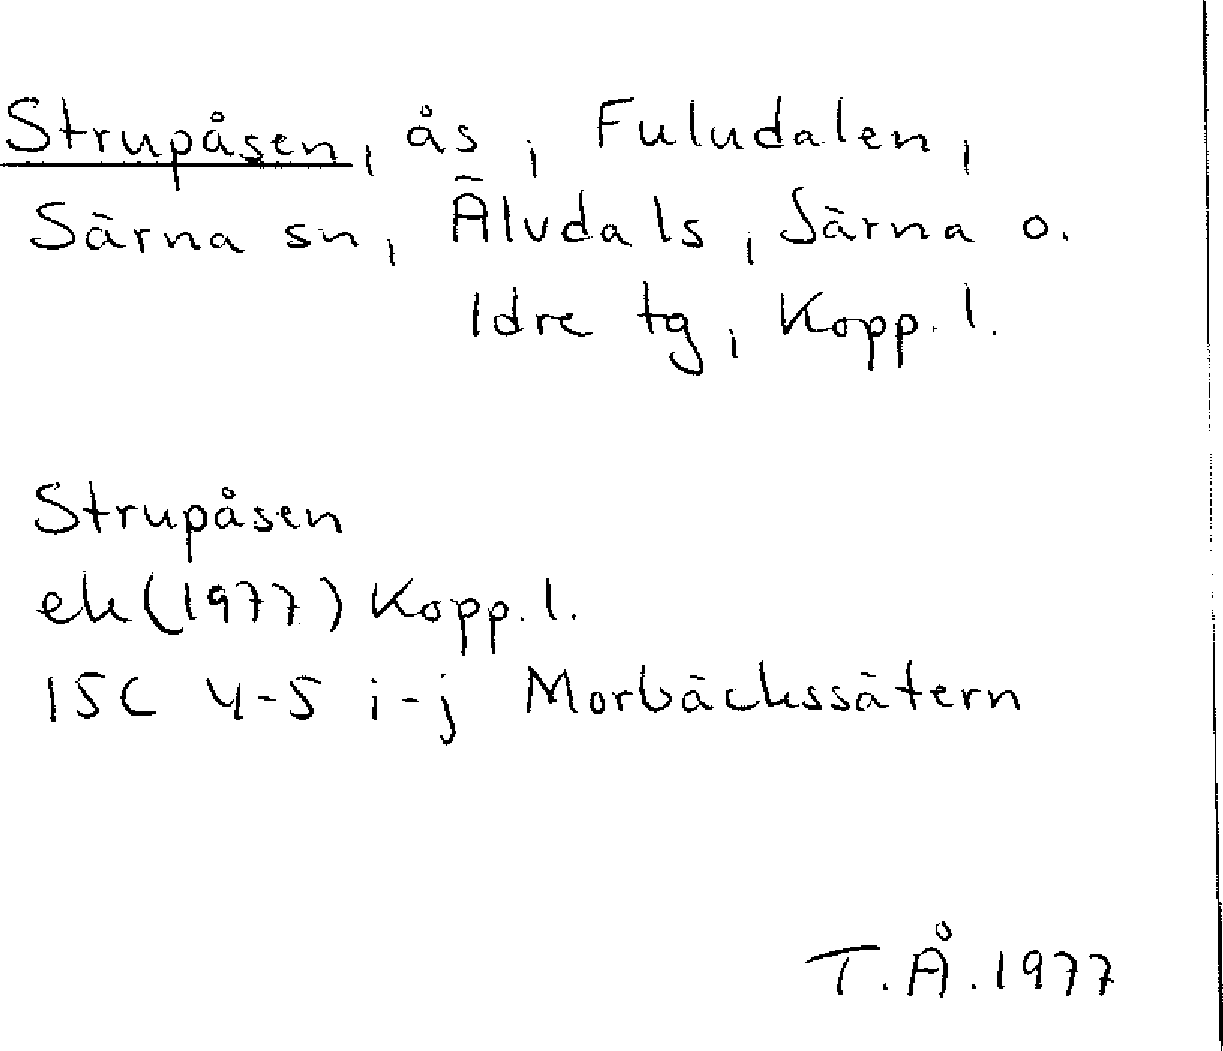 Strupåsen, ås, Fuludalen,
Särna sn, Älvdals, Särna o.
Idre tg, Kopp. l.
Strupåsen
ek (1977) Kopp. l.
15C 4-5 i-j Morbäckssätern
T.Å. 1977